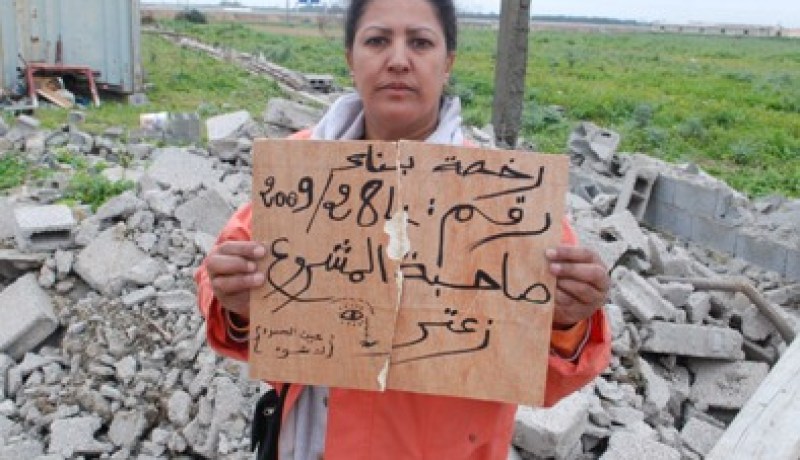 رخصة بناء
رقم: 281/2009
صاحبة المشروع
زعتر